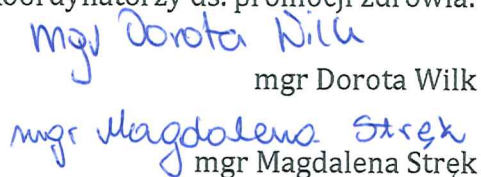 koordynatorzy ds. promocji zdrowia:
mgr Dorota Wilk
mgr Dorota Wilk
mgr Magdalena Stręk
mgr Magdalena Stręk